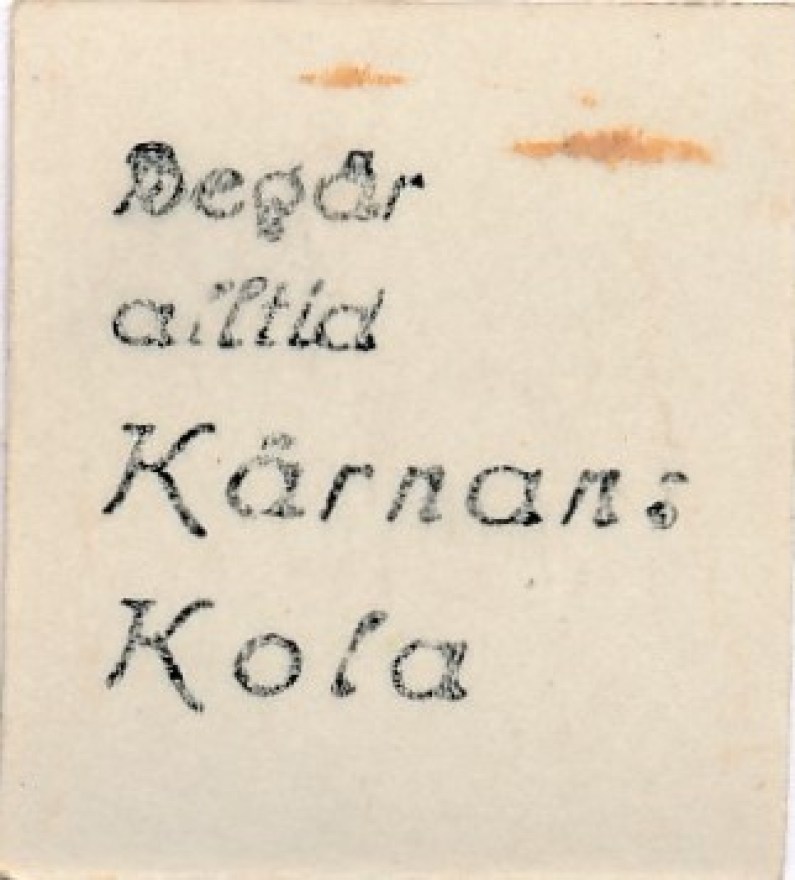 Begär
alltid
Kärnans
Kola